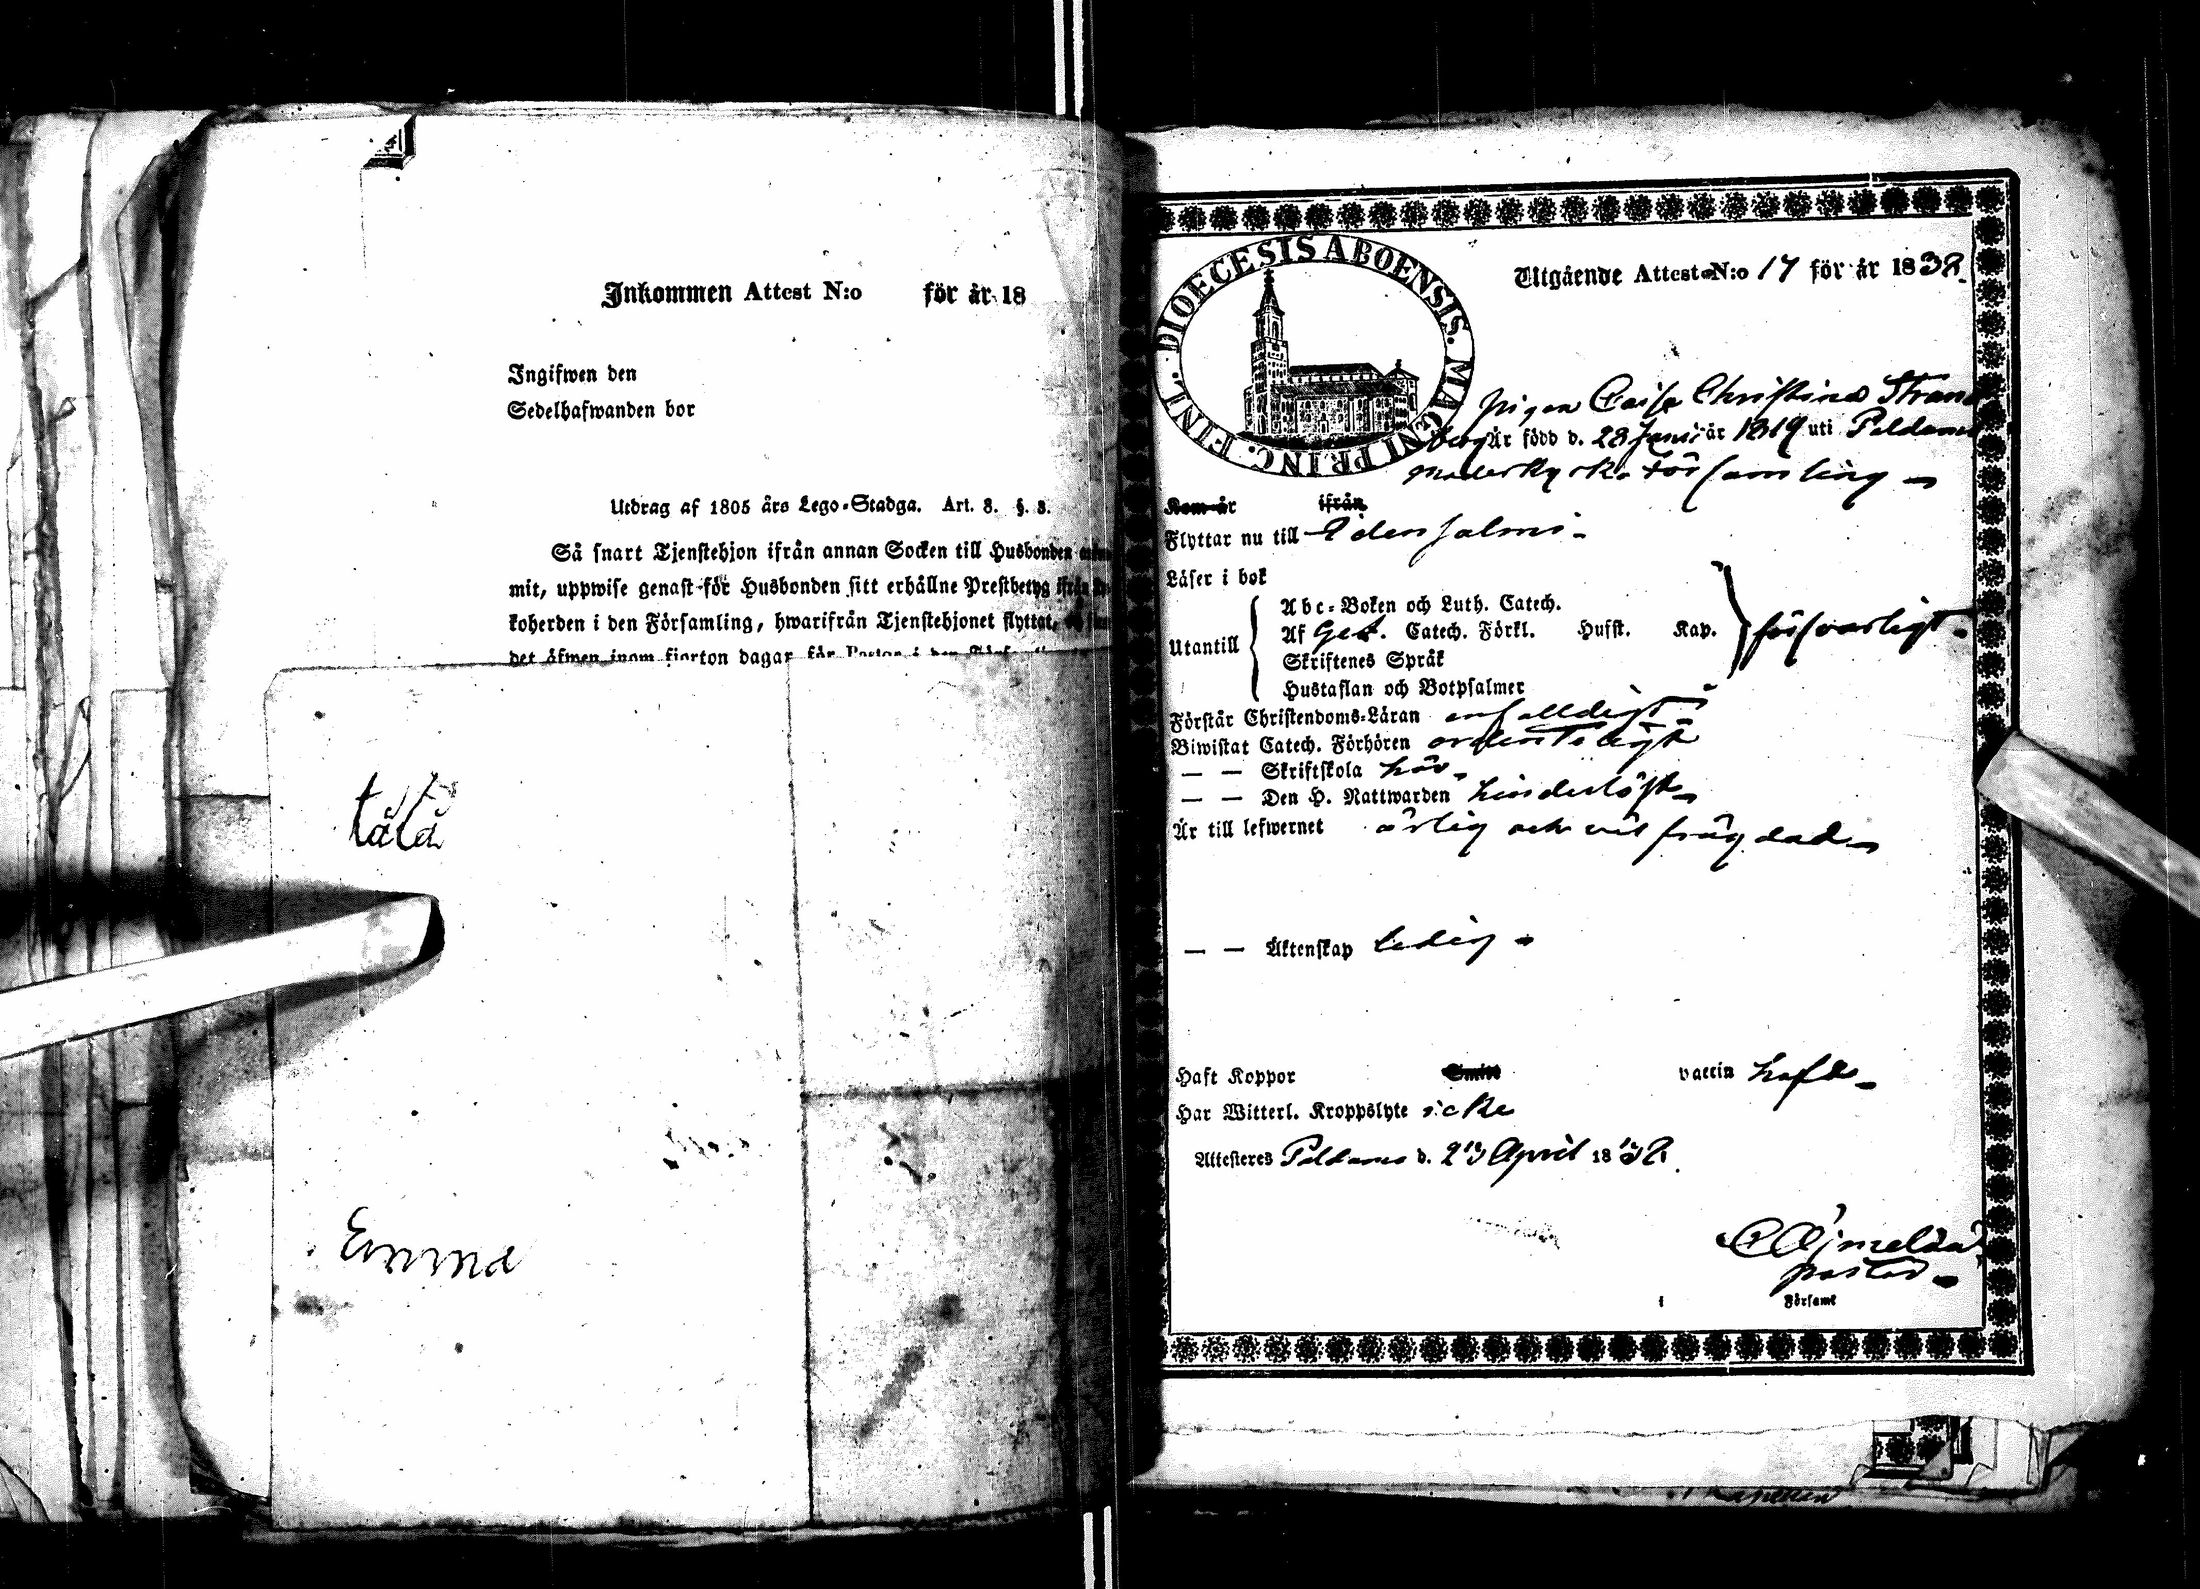 Inkommen Attest N:o för år 18
Ingifwen den
Sedelhafwanden bor
Utdrag af 1805 års Lego-Stadga. Art. 8. §. 3.
Så snart Tjenstehjon ifrån annan Socken till Husbonden
mit, uppwise genast för Husbonden sitt erhållne Prestbetyg ifrån
koherden i den Församling, hwarifrån Tjenstehjonet flyttat,
det äfwen inom fjorton dagar för Pastor i den
tåtå
Emma
DIOECESIS ABOENSIS. MAGNI PRINC. FINL.
Utgående Attest N:o 17 för år 1838.
pigan Caisa Christina Strand
berg Är född d. 28 Juni år 1819 uti Paldamo
moderkyrko församling
Kom år ifrån
Flyttar nu till Idensalmi
Läser i bok
Utantill
Abc-Boken och Luth. Catech.
Af Catech. Förkl. Husst. Kap.
Skriftenes Språk
Hustaflan och Botpsalmer
försvarligt
Förstår Christendoms-Läran enfalldigt
Biwistat Catech. Förhören ordenteligt
— — Skriftskola här
— — Den H. Nattwarden hinderlöst
Är till lefwernet ärlig och väl frägdad
— — Äktenskap ledig
Haft Koppor Smitt vaccin haft
Har Witterl. Kroppslyte icke
Attesteres Paldamo d. 23 April 1838.
pastor
i Församl
Kapellan